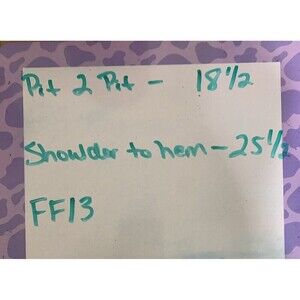 Pit 2 Pit - 18 1/2
Shoulder to hem - 25 1/2
FF13